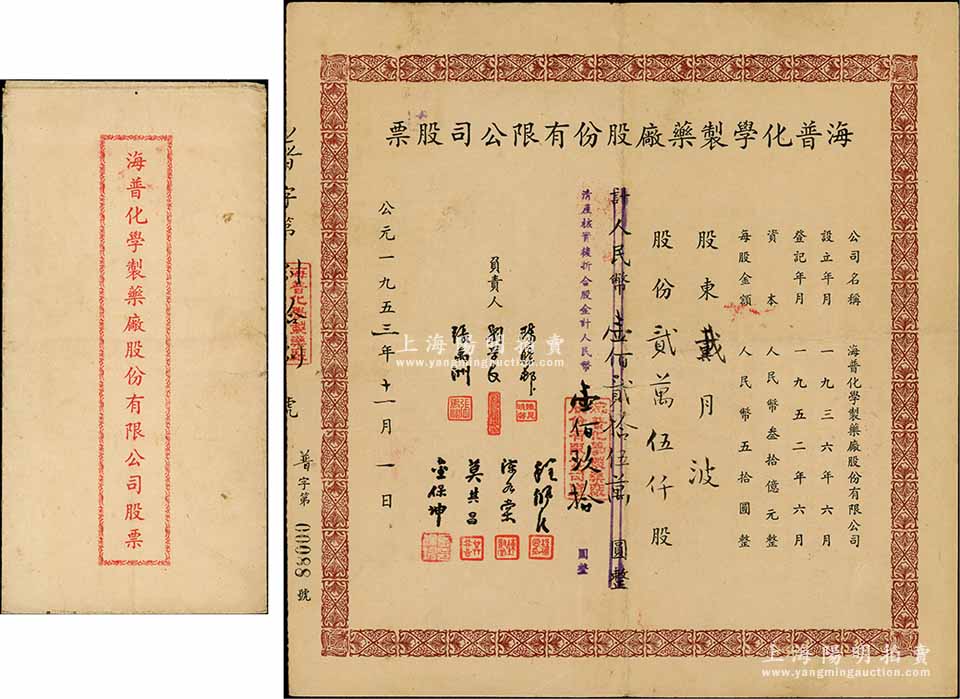 海普化學製藥廠股份有限公司股票
海普化學製藥廠股份有限公司股票
公司名稱 海普化學製藥廠股份有限公司
設立年月 一九三六年六月
登記年月 一九五二年六月
資本 人民幣叁拾億元整
每股金額 人民幣五拾圓整
股東 戴月波
股份貳萬伍仟股
計人民幣壹佰貳拾伍萬圓整
清產核實後折合股金計人民幣壹佰玖拾圓整
負責人
莫其昌
金保坤
公元一九五三年十一月一日
普字第
號
普字第00088號
上海陽明拍賣
www.yangmingauction.com
上海陽明拍賣
www.yangmingauction.com